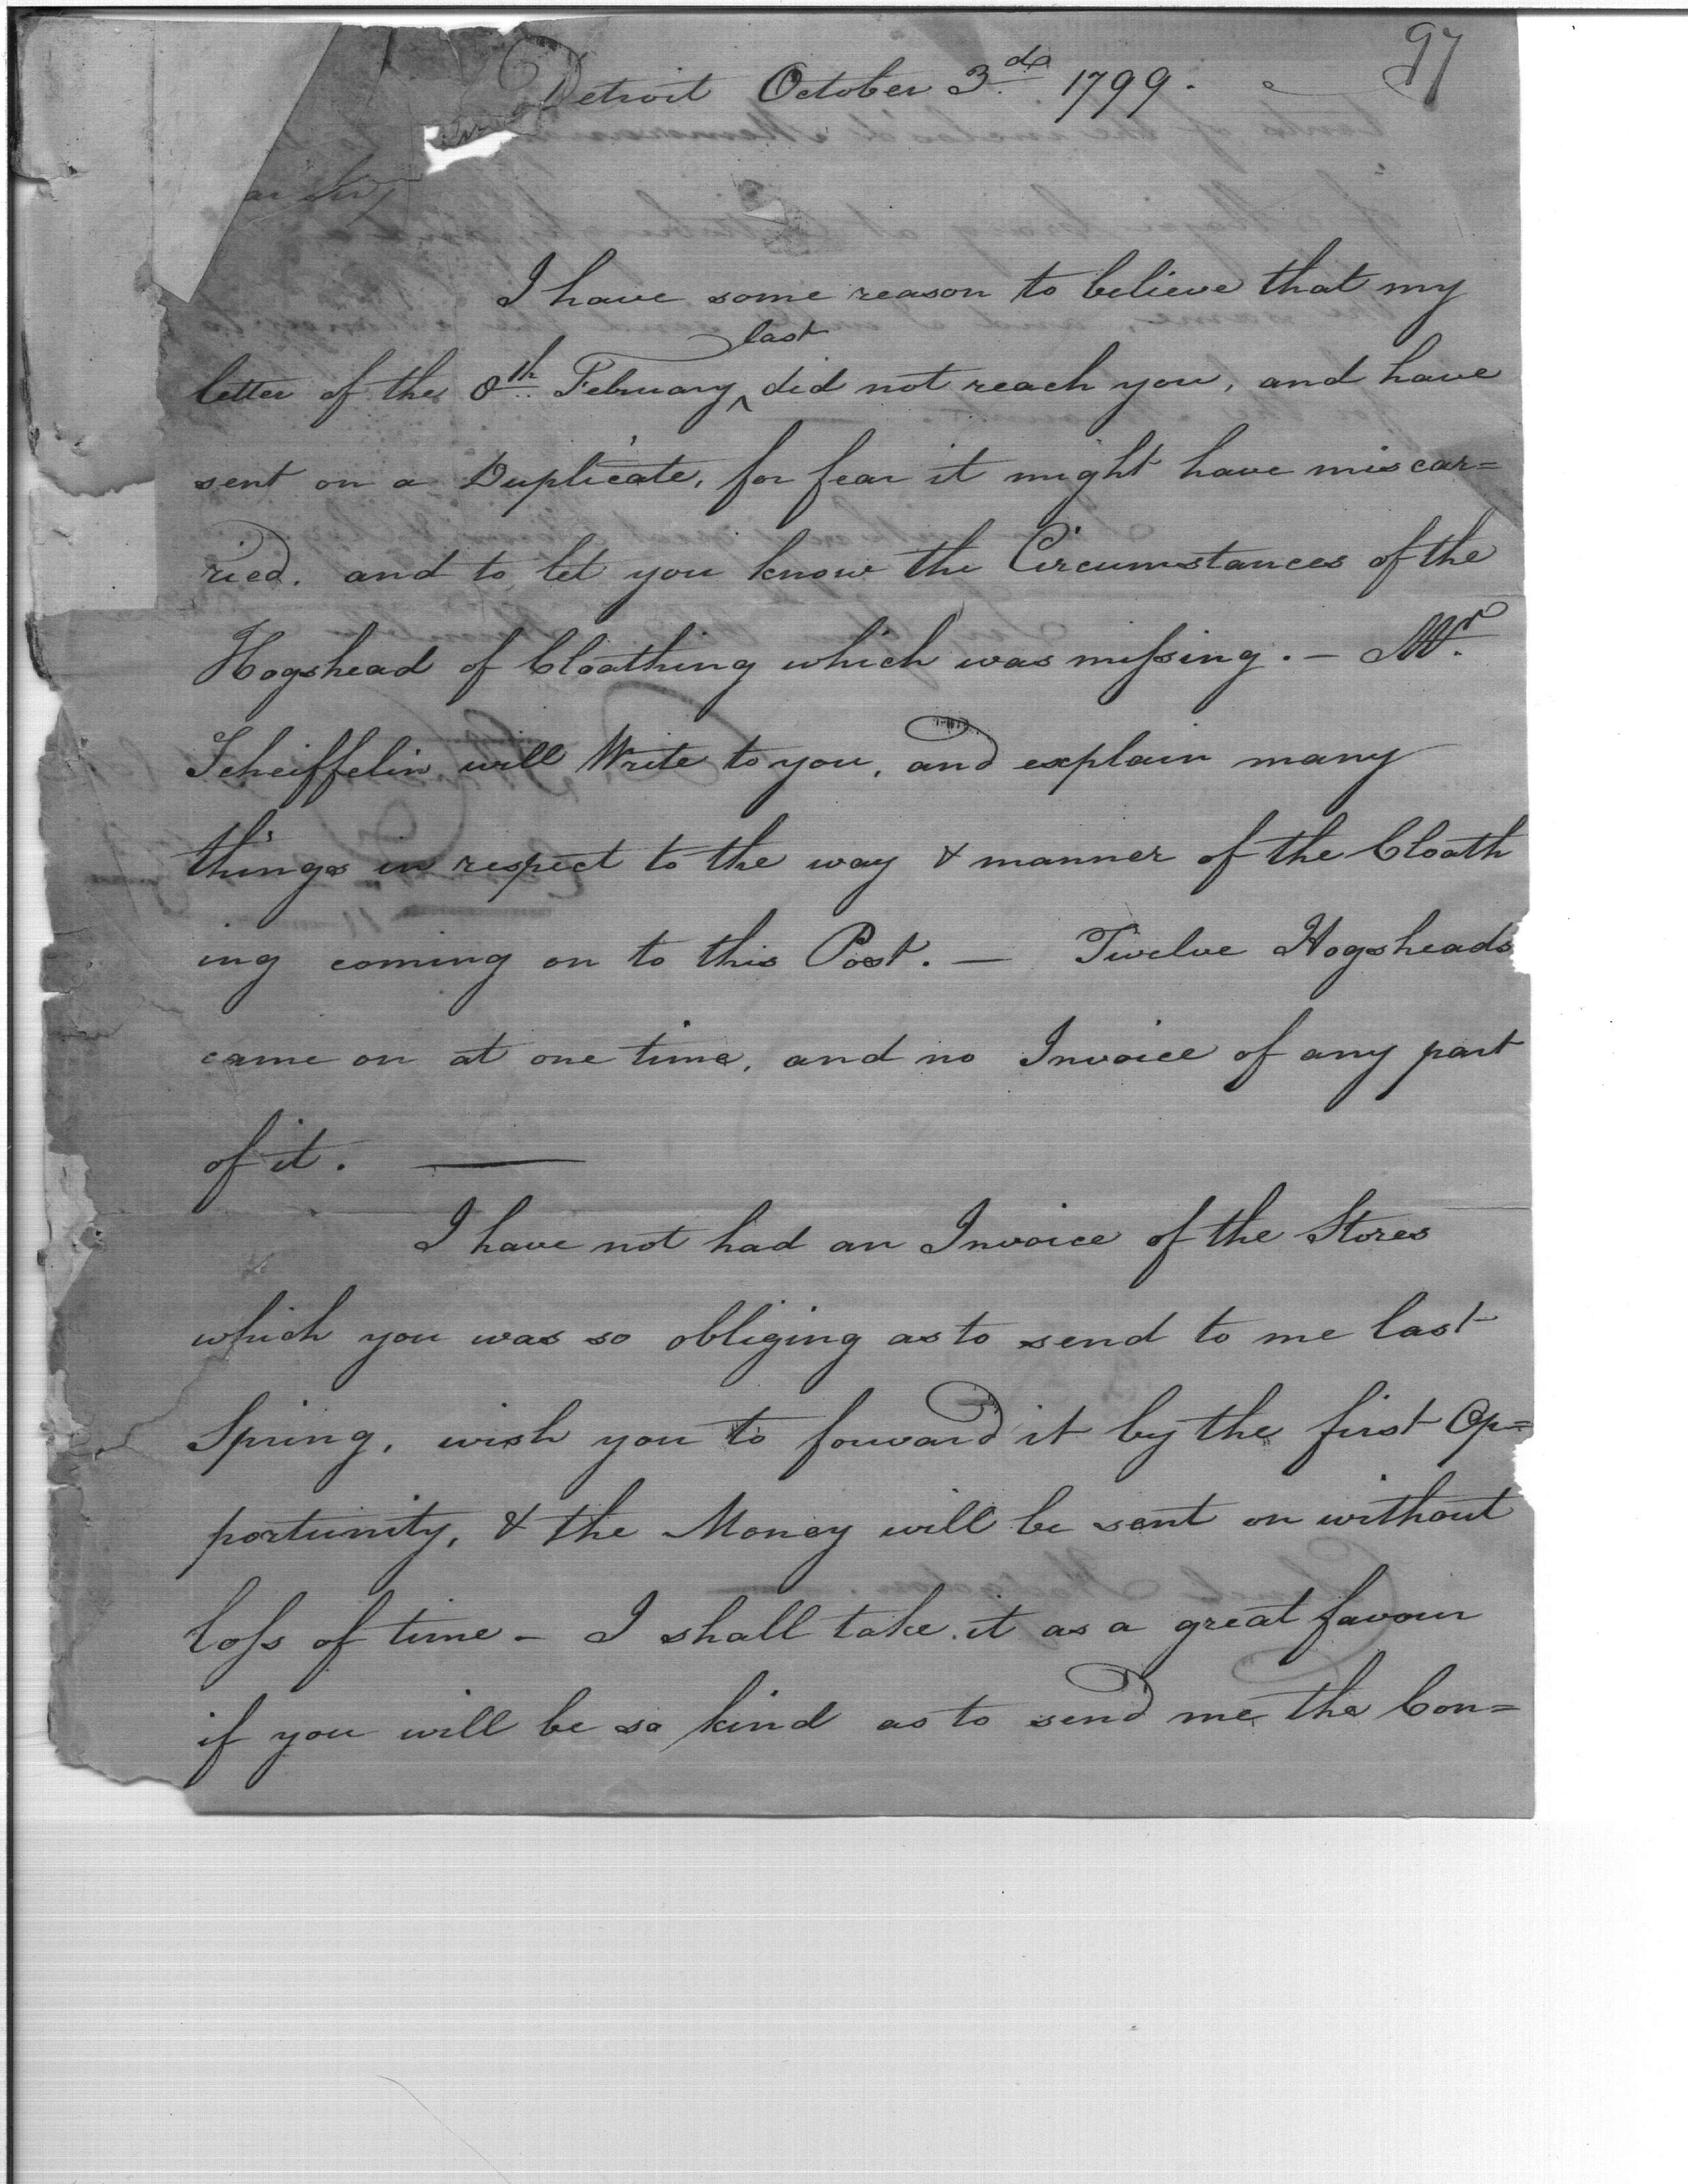 97
Detroit October 3.d 1799.
ar Sir,
I have some reason to believe that my
last
letter of the 8th February ^ did not reach you, and have
sent on a Duplicate, for fear it might have miscar=
ried. and to let you know the Circumstances of the
Hogshead of Cloathing which was missing. — Mr.
Scheiffelin will Write to you, and explain many
things in respect to the way & manner of the Cloath
ing coming on to this Post. — Twelve Hogsheads
came on at one time, and no Invoice of any part
of it. —
I have not had an Invoice of the Stores
which you was so obliging as to send to me last
Spring, wish you to forward it by the first Op=
portunity, & the Money will be sent on without
loss of time – I shall take it as a great favour
if you will be so kind as to send me the Con=